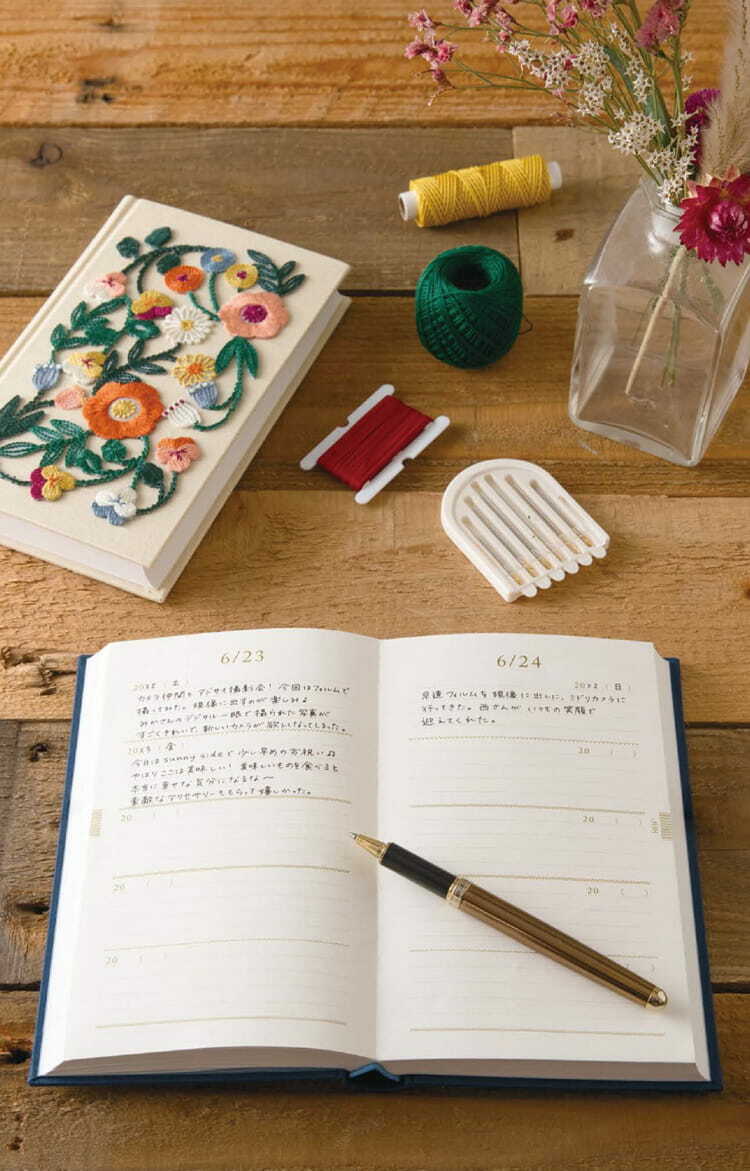 6/23
20XX （土）
カメラ仲間とアジサイ撮影会！今回はフィルムで
撮ってみた。現像に出すのが楽しみ♪
みかさんのデジタル一眼で撮られた写真が
すごくきれいで、新しいカメラが欲しくなってしまった。
20X3 （金）
今日は sunny side で少し早めのお祝い♫
やはりここは美味しい！美味しいものを食べると
本当に幸せな気分になるな〜
素敵なアクセサリーももらって嬉しかった。
20 （ ）
20 （ ）
20 （ ）
6/24
20X2 （日）
早速フィルムを現像に出しに、ミドリカメラに
行ってきた。西さんがいつもの笑顔で
迎えてくれた。
20 （ ）
20 （ ）
20 （ ）